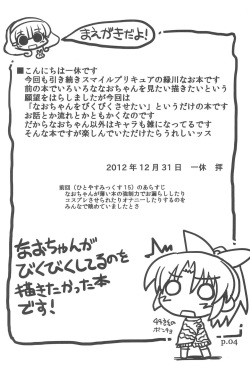 まえがきだよ!
■こんにちは一休です
今回も引き続きスマイルプリキュアの緑川なお本です
前の本でいろいろななおちゃんを見たい描きたいという
願望をはらしましたが今回は
「なおちゃんをびくびくさせたい」というだけの本です
お話とか流れとかともかくなのです
だからなおちゃん以外はキャラも雑になってるです
そんな本ですが楽しんでいただけたらうれしいッス
2012年12月31日 一休 拝
前回(ひとやすみっくす15)のあらすじ
なおちゃんが薄い本の強制力でお漏らししたり
コスプレさせられたりオナニーしたりするのを
みんなで眺めていましたとさ
なおちゃんが
びくびくしてるのを
描きたかった本
です!
p.04